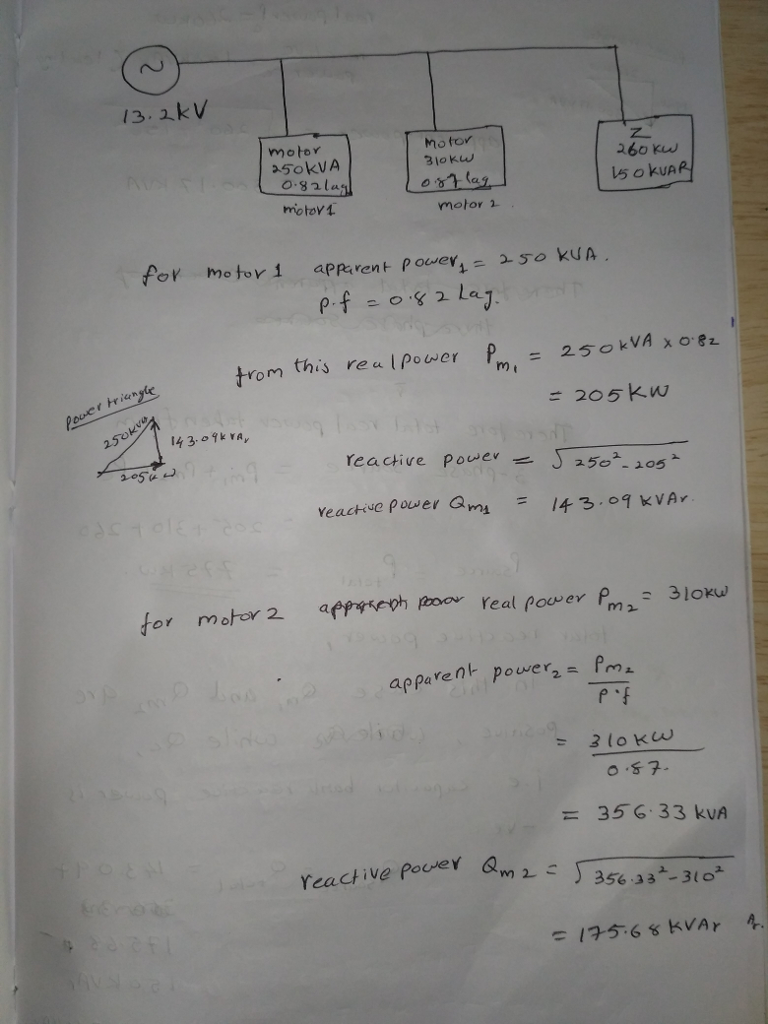 ~
13.2kV
motor
250KVA
0.82lag
motor1
Motor
310KW
0.87 lag
motor 2
Z
260 KW
150 KVAR
for motor 1 apparent power1 = 250 KVA.
p.f = 0.82 Lag.
from this real power Pm1 = 250KVA x 0.82
= 205KW
Power triangle
250KVA
143.09KVAr
205KW
reactive power = √250²-205²
reactive power Qm1 = 143.09 KVAr.
for motor 2 real power Pm2 = 310KW
apparent power2 = Pm2
p.f
= 310KW
0.87.
= 356.33 KVA
reactive power Qm2 = √356.33²-310²
= 175.68 KVAr